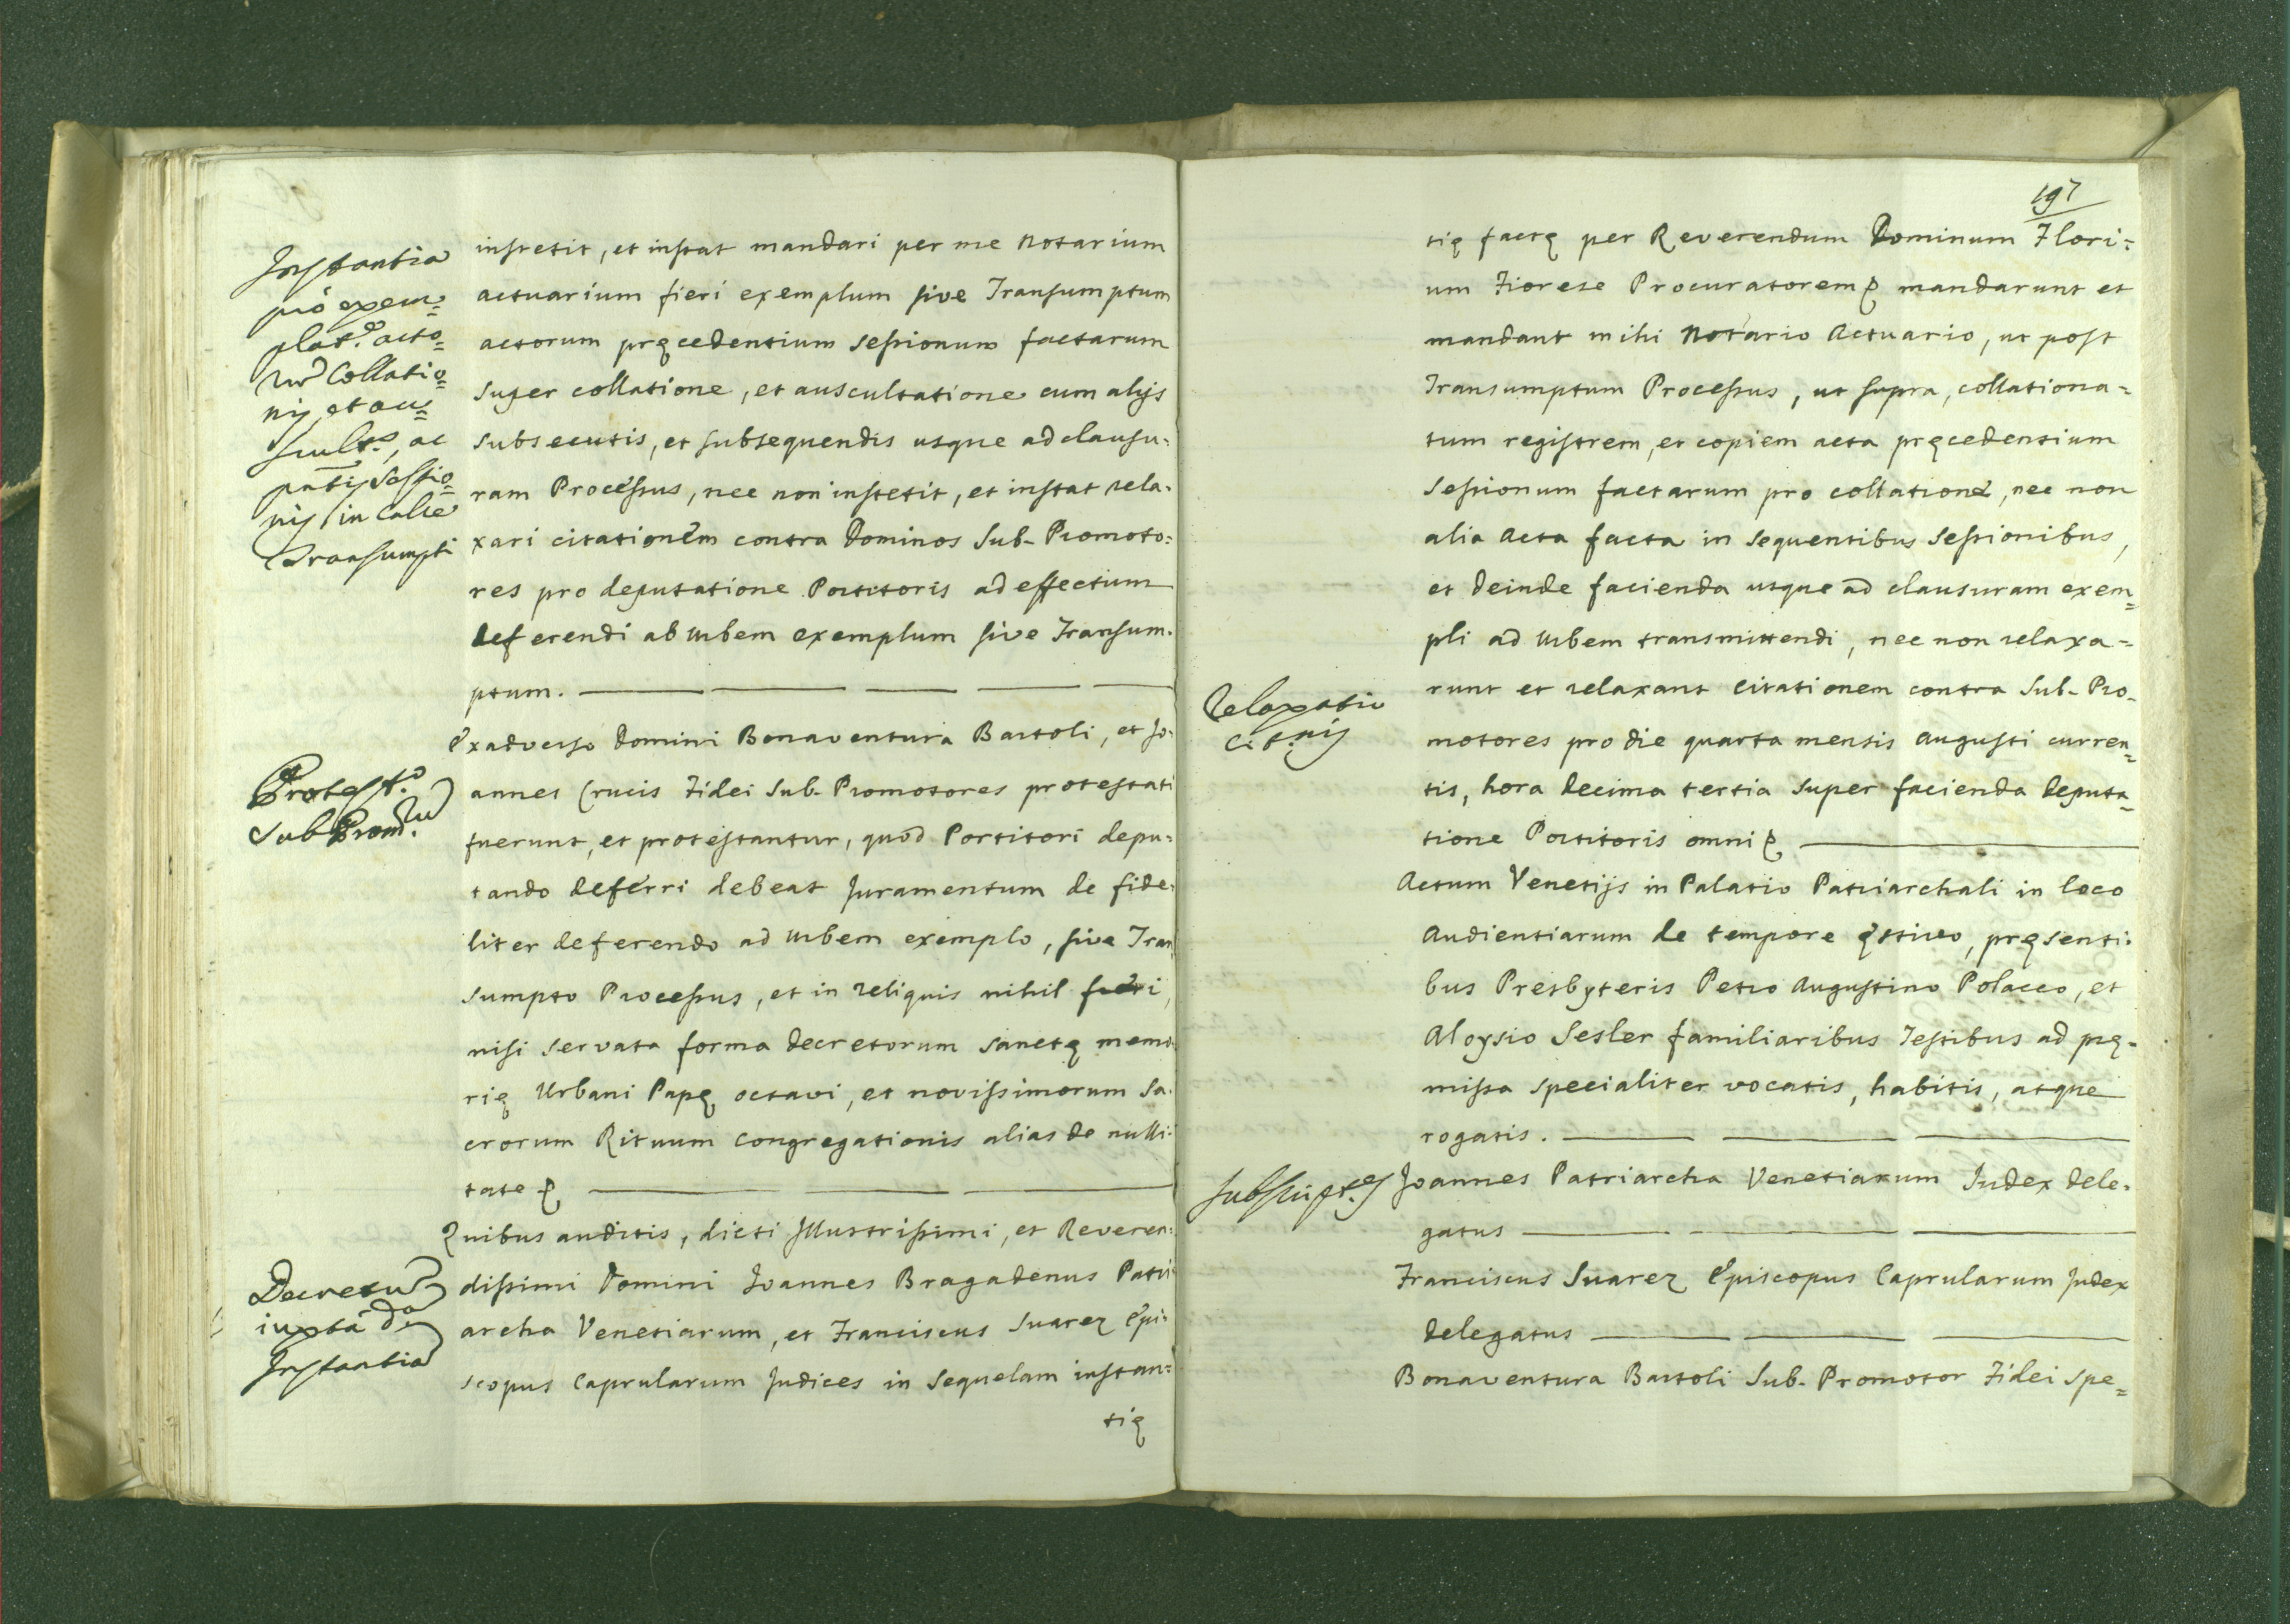 Instantia
pro exem=
plat.e acto=
rum Collatio=
nis, et aus=
cult.s, ac
pntis sessio=
nis in Calce
Transumpti
institit, et instat mandari per me Notarium
actuarium fieri exemplum sive Transumptum
actorum pręcedentium Sessionum factarum
super collatione, et auscultatione cum alijs
subsecutis, et subsequendis usque ad clausu-
ram Processus, nec non institit, et instat rela-
xari citationem contra Dominos Sub-Promoto=
res pro deputatione Portitoris ad effectum
deferendi ab Urbem exemplum sive Transum-
ptum.
Protest.o
Sub Prom.ru
Ex adverso Domini Bonaventura Bartoli, et Jo-
annes Crucis Fidei Sub-Promotores protestati
fuerunt, et protestantur, quod Portitori depu=
tando deferri debeat Juramentum de fide-
liter deferendo ad Urbem exemplo, sive Tran
sumpto Processus, et in reliquis nihil fieri,
nisi servata forma decretorum sanctę memo-
rię Urbani Papę octavi, et novissimorum Sa-
crorum Rituum Congregationis alias de nulli-
tate &
Decretum
iuxta da
Instantia
Quibus auditis, dicti Illustrissimi, et Reveren-
dissimi Domini Joannes Bragadenus Patri-
archa Venetiarum, et Franciscus Suarez Epi-
scopus Caprularum Judices in sequelam instan=
tię
197
tię factę per Reverendum Dominum Flori=
um Fiorese Procuratorem & mandarunt et
mandant mihi Notario Actuario, ut post
Transumptum Processus, ut supra, collationa=
tum registrem, et copiem acta pręcedentium
Sessionum factarum pro collatione, nec non
alia Acta facta in sequentibus Sessionibus,
et deinde facienda usque ad clausuram exem=
pli ad Urbem transmittendi, nec non relaxa=
Relaxatio
Cit.nis
runt et relaxant citationem contra Sub-Pro-
motores pro die quarta mensis Augusti curren=
tis, hora decima tertia super facienda deputa=
tione Portitoris omni &
Actum Venetijs in Palatio Patriarchali in loco
Audientiarum de tempore ęstivo, pręsenti-
bus Presbyteris Petro Augustino Polacco, et
Aloysio Sesler familiaribus Testibus ad prę-
missa specialiter vocatis, habitis, atque
rogatis.
Subscript.es
Joannes Patriarcha Venetiarum Judex dele-
gatus
Franciscus Suarez Episcopus Caprularum Judex
delegatus
Bonaventura Bartoli Sub-Promotor Fidei spe=